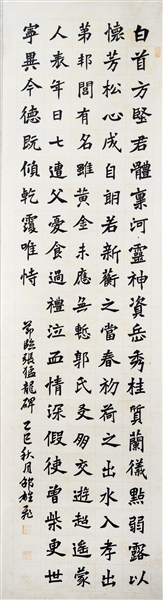 白首方堅君體稟河靈神資岳秀桂質蘭儀點弱露以
懷芳松心成自朗若新蘅之當春初荷之出水入孝出
第邦閭有名雖黃金未應無慙郭氏友朋交遊超遙蒙
人表年日七遭父憂食過禮泣血情深假使曾柴更世
寧異今德既傾乾覆唯恃
節臨張猛龍碑 乙巳秋月